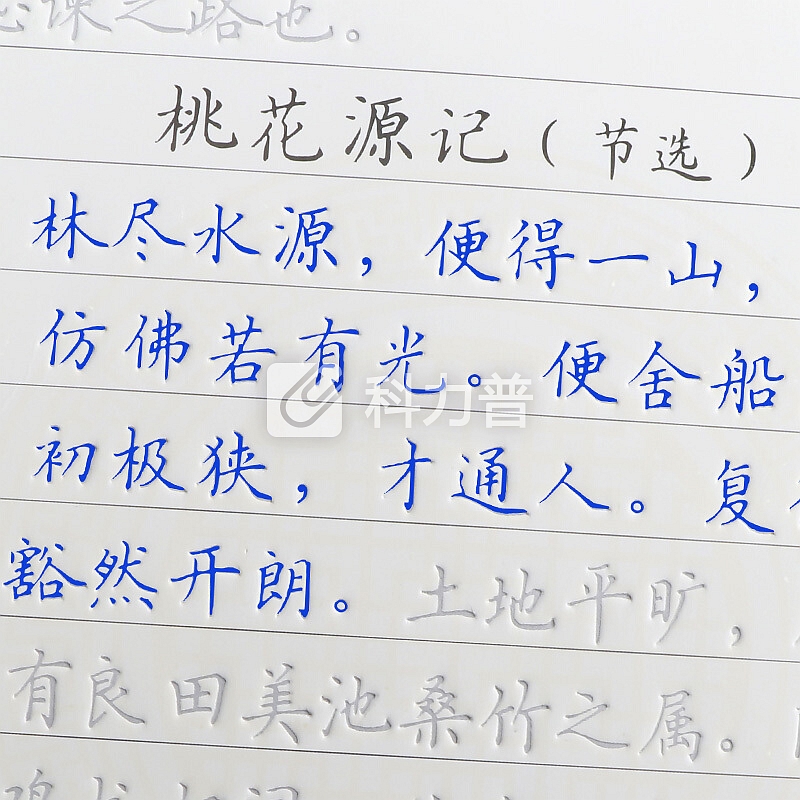 谋之路也。
桃花源记（节选）
林尽水源，便得一山，
仿佛若有光。便舍船
科力普
初极狭，才通人。复
豁然开朗。土地平旷，
有良田美池桑竹之属。